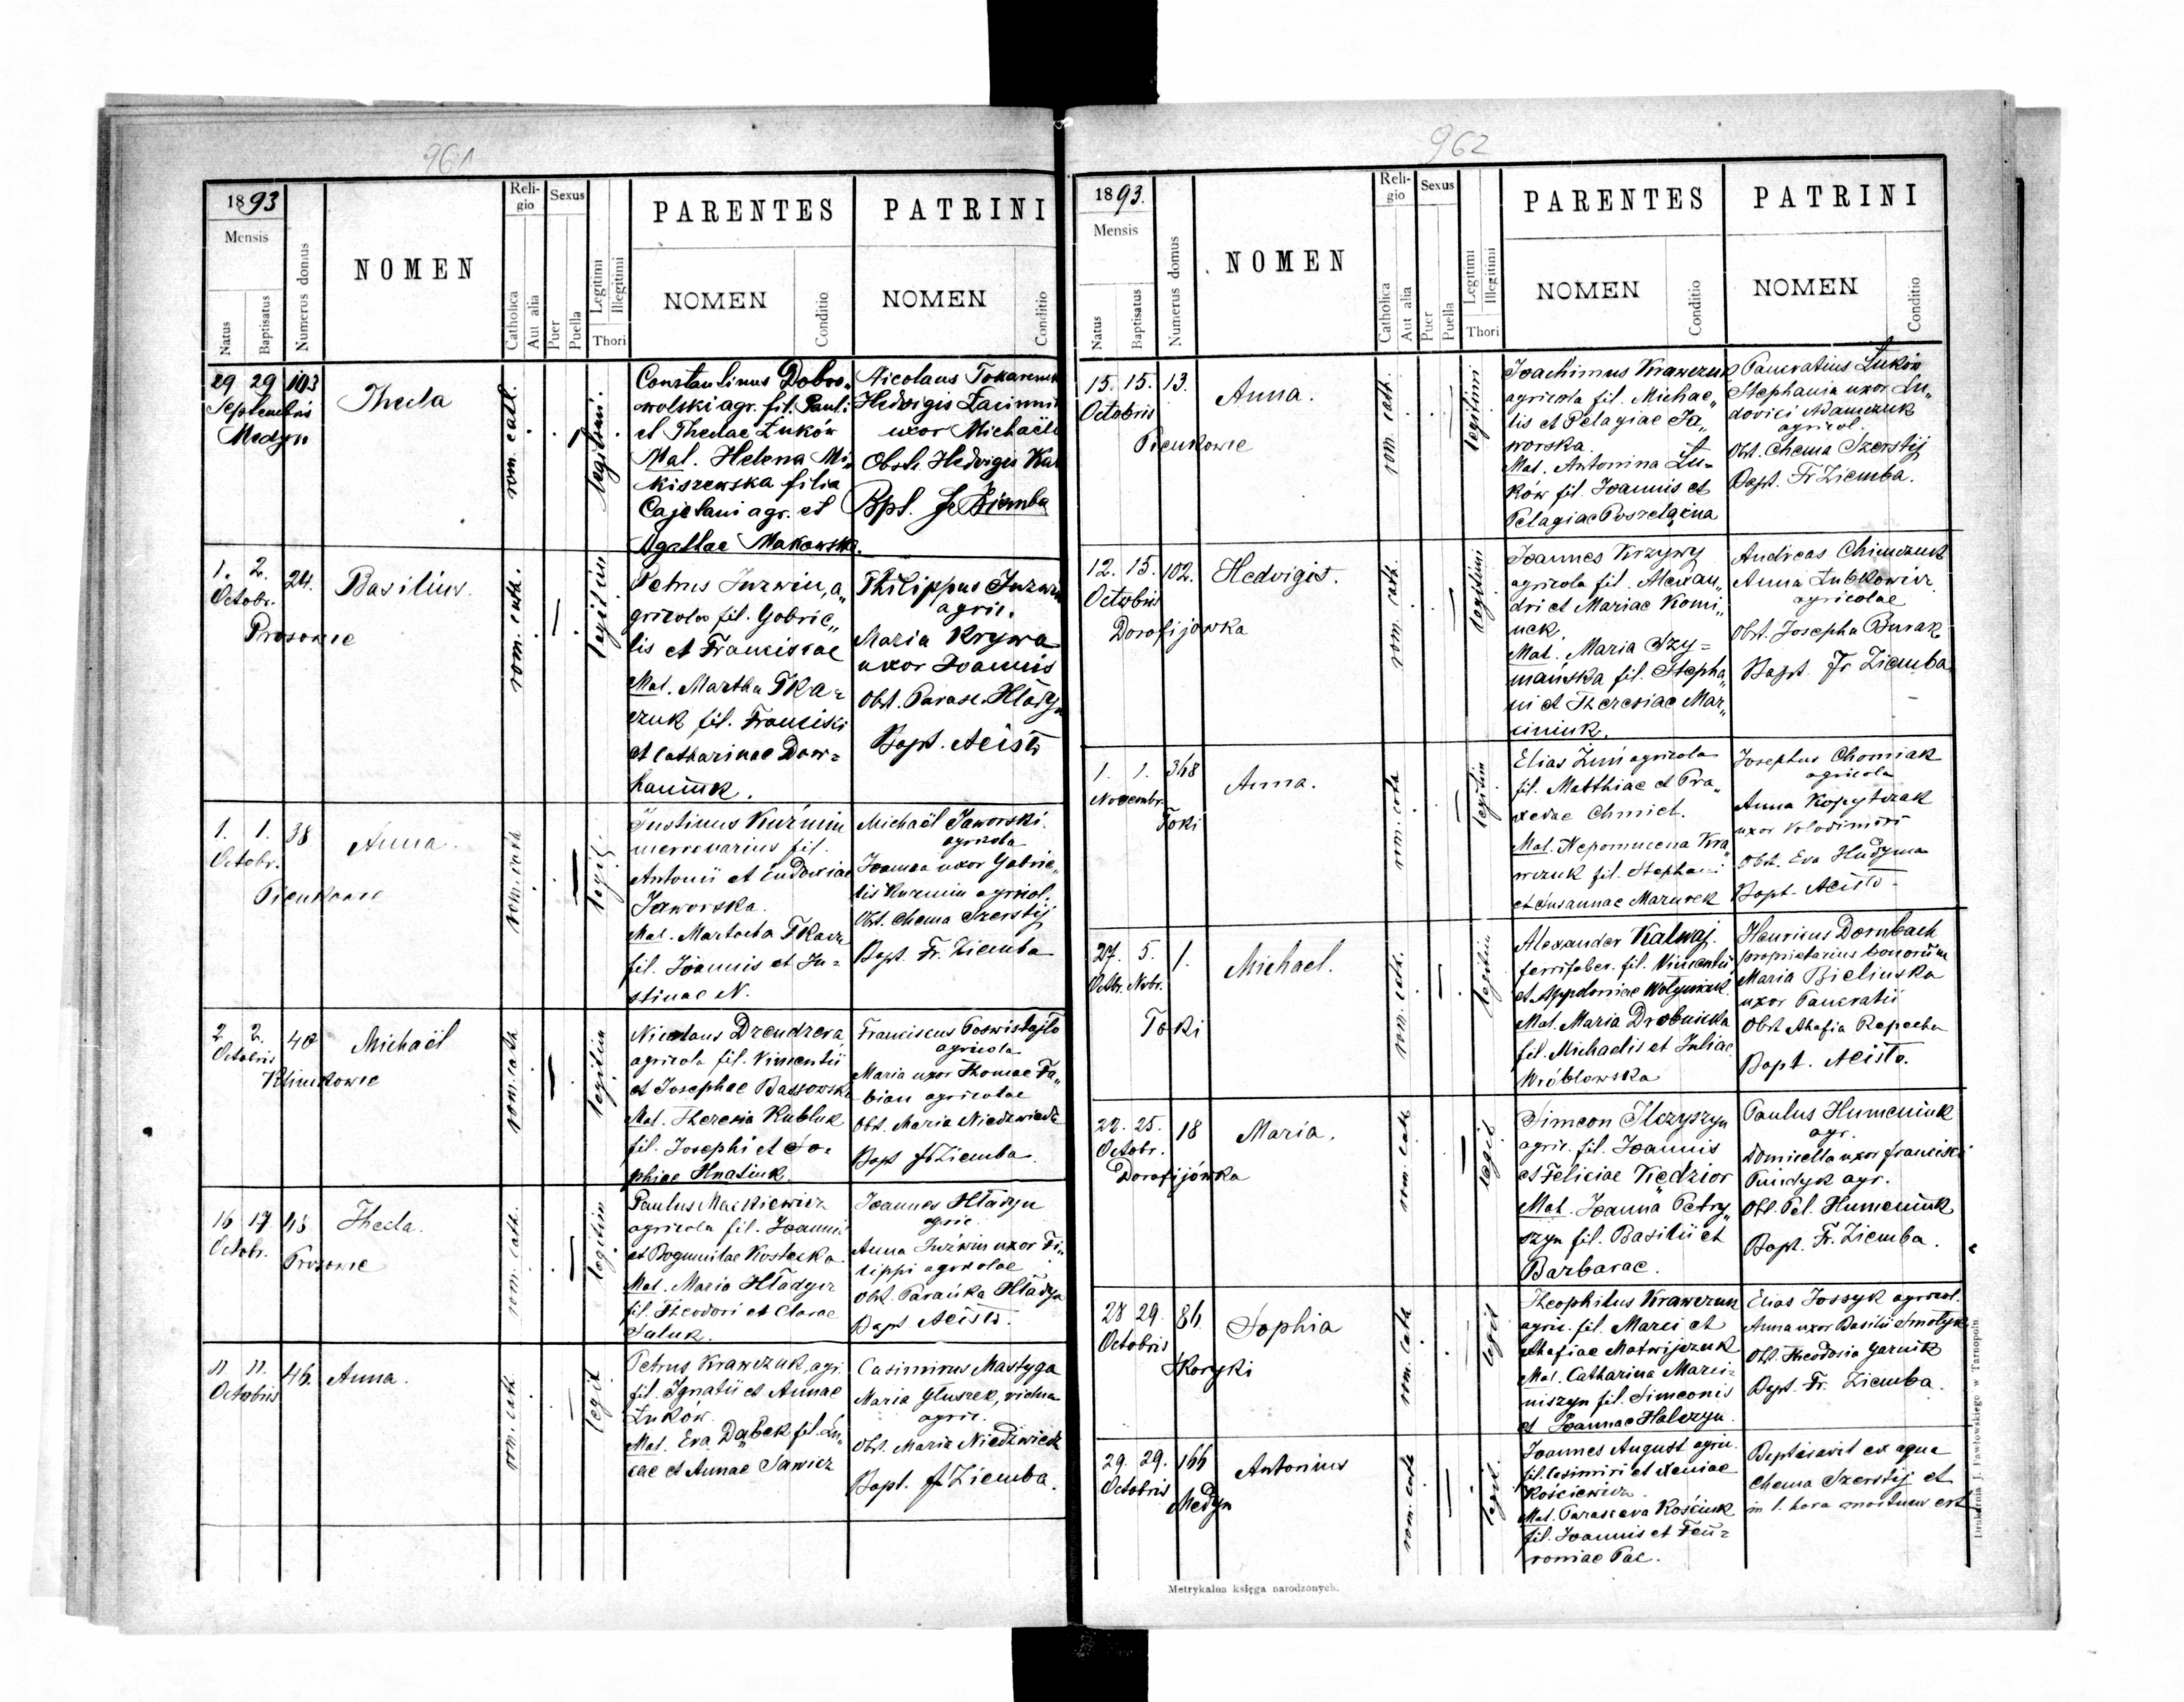 961
1893
Mensis
Natus
Baptisatus
Numerus domus
NOMEN
Reli-
gio
Catholica
Aut alia
Sexus
Puer
Puella
Legitimi
Illegitimi
Thori
PARENTES
NOMEN
Conditio
PATRINI
NOMEN
Conditio
29 29 103
Septembris
Medyn
Thecla
rom. cath.
legitimi.
Constantinus Dobro„
wolski agr. fil. Pauli
et Theclae Łuków
Mat. Helena Mi„
kiszewska filia
Cajetani agr. et
Agathae Makowska.
Nicolaus
Hedvigis
uxor Michaelis
Obst. Hedvigis
Bpt. Fr Ziemba
1. 2. 24.
Octobr.
Prosowce
Basilius.
rom. cath.
legitim
Petrus Juzwin, a„
gricola fil. Gabrie„
lis et Franciscae
Mat. Martha Tka=
czuk fil. Francisci
et Catharinae Dow=
haniuk.
Philippus Juzwin
agric.
Maria Krywa
uxor Joannis
Obst. Parasc. Hładyn
Bapt. Acisło
1. 1. 38
Octobr.
Pieńkowce
Anna.
rom. cath
legit.
Justinus Kuźmin
mercenarius fil.
Antonii et Eudoxiae
Jaworska.
Mat. Martha Tkacz
fil. Joannis et Ju=
stinae N.
Michaël Jaworski.
agricola
Joanna uxor Gabrie„
lis Kuzmin agricol.
Obst. Chema Szerstij
Bapt. Fr. Ziemba
2 2. 40
Octobris
Klimkowce
Michaël
rom. cath.
legitim
Nicolaus Dzendzera
agricola fil. Vincentii
et Josephae
Mat. Theresia Kubluk
fil. Josephi et So=
phiae Hnatiuk.
Franciscus Poswistajło
agricola
Maria uxor Thomae Fa„
bian agricolae
Obst. Maria Niedzwiedz
Bapt Fr Ziemba.
16 17 45
Octobr.
Prosowce
Thecla.
rom. cath.
legitim
Paulus Mackiewicz
agricola fil. Joannis
et Bogumilae Kostecka
Mat. Maria Hładyn
fil. Theodori et Clarae
Saluk.
Joannes Hładyn
agric.
Anna Juzwin uxor Fi„
lippi agricolae
Obst. Parańka Hładyn
Bapt Acisło.
11. 11. 46.
Octobris
Anna.
rom. cath.
legit
Petrus Krawczuk agr.
fil. Ignatii et Annae
Łuków.
Mat. Eva Dąbek fil. Lu„
cae et Annae Sawicz
Casimirus Mastyga
Maria Głuszek, vidua
agric.
Obst. Maria Niedzwiedz
Bapt. Fr Ziemba.
962
1893.
Mensis
Natus
Baptisatus
Numerus domus
NOMEN
Reli-
gio
Catholica
Aut alia
Sexus
Puer
Puella
Legitimi
Illegitimi
Thori
PARENTES
NOMEN
Conditio
PATRINI
NOMEN
Conditio
15. 15. 13.
Octobris
Pieńkowce
Anna.
rom. cath.
legitimi
Joachimus Krawczuk
agricola fil. Michae„
lis et Pelagiae Ja„
worska.
Mat. Antonina Łu=
ków fil. Joannis et
Pelagiae
Pancratius Łuków
Stephania uxor Lu„
dovici Adamczuk
agricol.
Obst. Chema Szerstij
Bapt. Fr Ziemba.
12. 15. 102.
Octobris
Dorofijówka
Hedvigis.
rom. cath.
legitimi
Joannes Krzywy
agricola fil. Alexan„
dri et Mariae Komi„
uck.
Mat. Maria Szy=
mańska fil. Stepha„
ni et Theresiae Mar„
ciniuk.
Andreas Chimczuk
Anna Łubkowicz
agricolae
Obst. Josepha Burak
Bapt. Fr Ziemba
1. 1. 368
Novembr.
Toki
Anna.
rom. cath
legitim
Elias Zim agricola
fil. Matthiae et Pra„
xedae Chmiel.
Mat. Nepomucena Kra„
wczuk fil. Stephani
et Susannae Mazurek
Josephus Chomiak
agricola
Anna Kopytczak
uxor Volodimiri
Obst. Eva Hudyma
Bapt. Acisło.
27. 5. 1.
Octbr. Nvbr.
Toki
Michael.
rom. cath.
legitim
Alexander Kalwaj.
ferrifaber. fil. Vincentii
et Appoloniae Wołyniuk
Mat. Maria Drobnicka
fil. Michaelis et Juliae
Wróblowska
Henricus Dornbach
proprietarius bonorum
Maria Bielinska
uxor Pancratii
Obst Ahafia Repecka
Bapt. Acisło.
22. 25. 18
Octobr.
Dorofijówka
Maria.
rom. cath
legit
Simeon Ilczyszyn
agric. fil. Joannis
et Feliciae Kędzior
Mat. Joanna Petry„
szyn fil. Basilii et
Barbarae.
Paulus Humeniuk
agr.
Domicella uxor Francisci
Pindyk agr.
Obt. Pel. Humeniuk
Bapt. Fr. Ziemba.
28 29. 86.
Octobris
Skoryki
Sophia
rom. cath
legit
Theophilus Krawczuk
agric. fil. Marci et
Ahafiae Matwijczuk
Mat. Catharina Marci=
niszyn fil. Simeonis
et Joannae Halczyn.
Elias Jossyk agricol.
Anna uxor Basilii Smolyk
Obst. Theodosia Garnik
Bapt. Fr. Ziemba.
29. 29. 166
Octobris
Medyn
Antonius
rom. cath
legit.
Joannes August agric.
fil. Casimiri et Xeniae
Kościewicz.
Mat. Parasceva Kościuk
fil. Joannis et Feu=
roniae Pac.
Baptisavit ex aqua
Chema Szerstij et
in 1. hora mortuus est
Metrykalna księga narodzonych.
Drukarnia J. Pawłowskiego w Tarnopolu